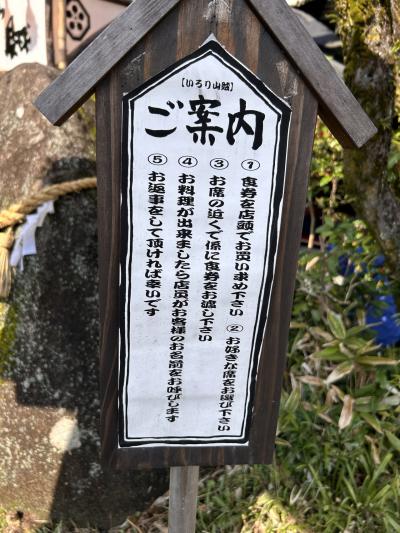 【いろり山賊】
ご案内
① 食券を店頭でお買い求め下さい ② お好きな席をお選び下さい
③ お席の近くで係に食券をお渡し下さい
④ お料理が出来ましたら店員がお客様のお名前をお呼びします
⑤ お返事をして頂ければ幸いです